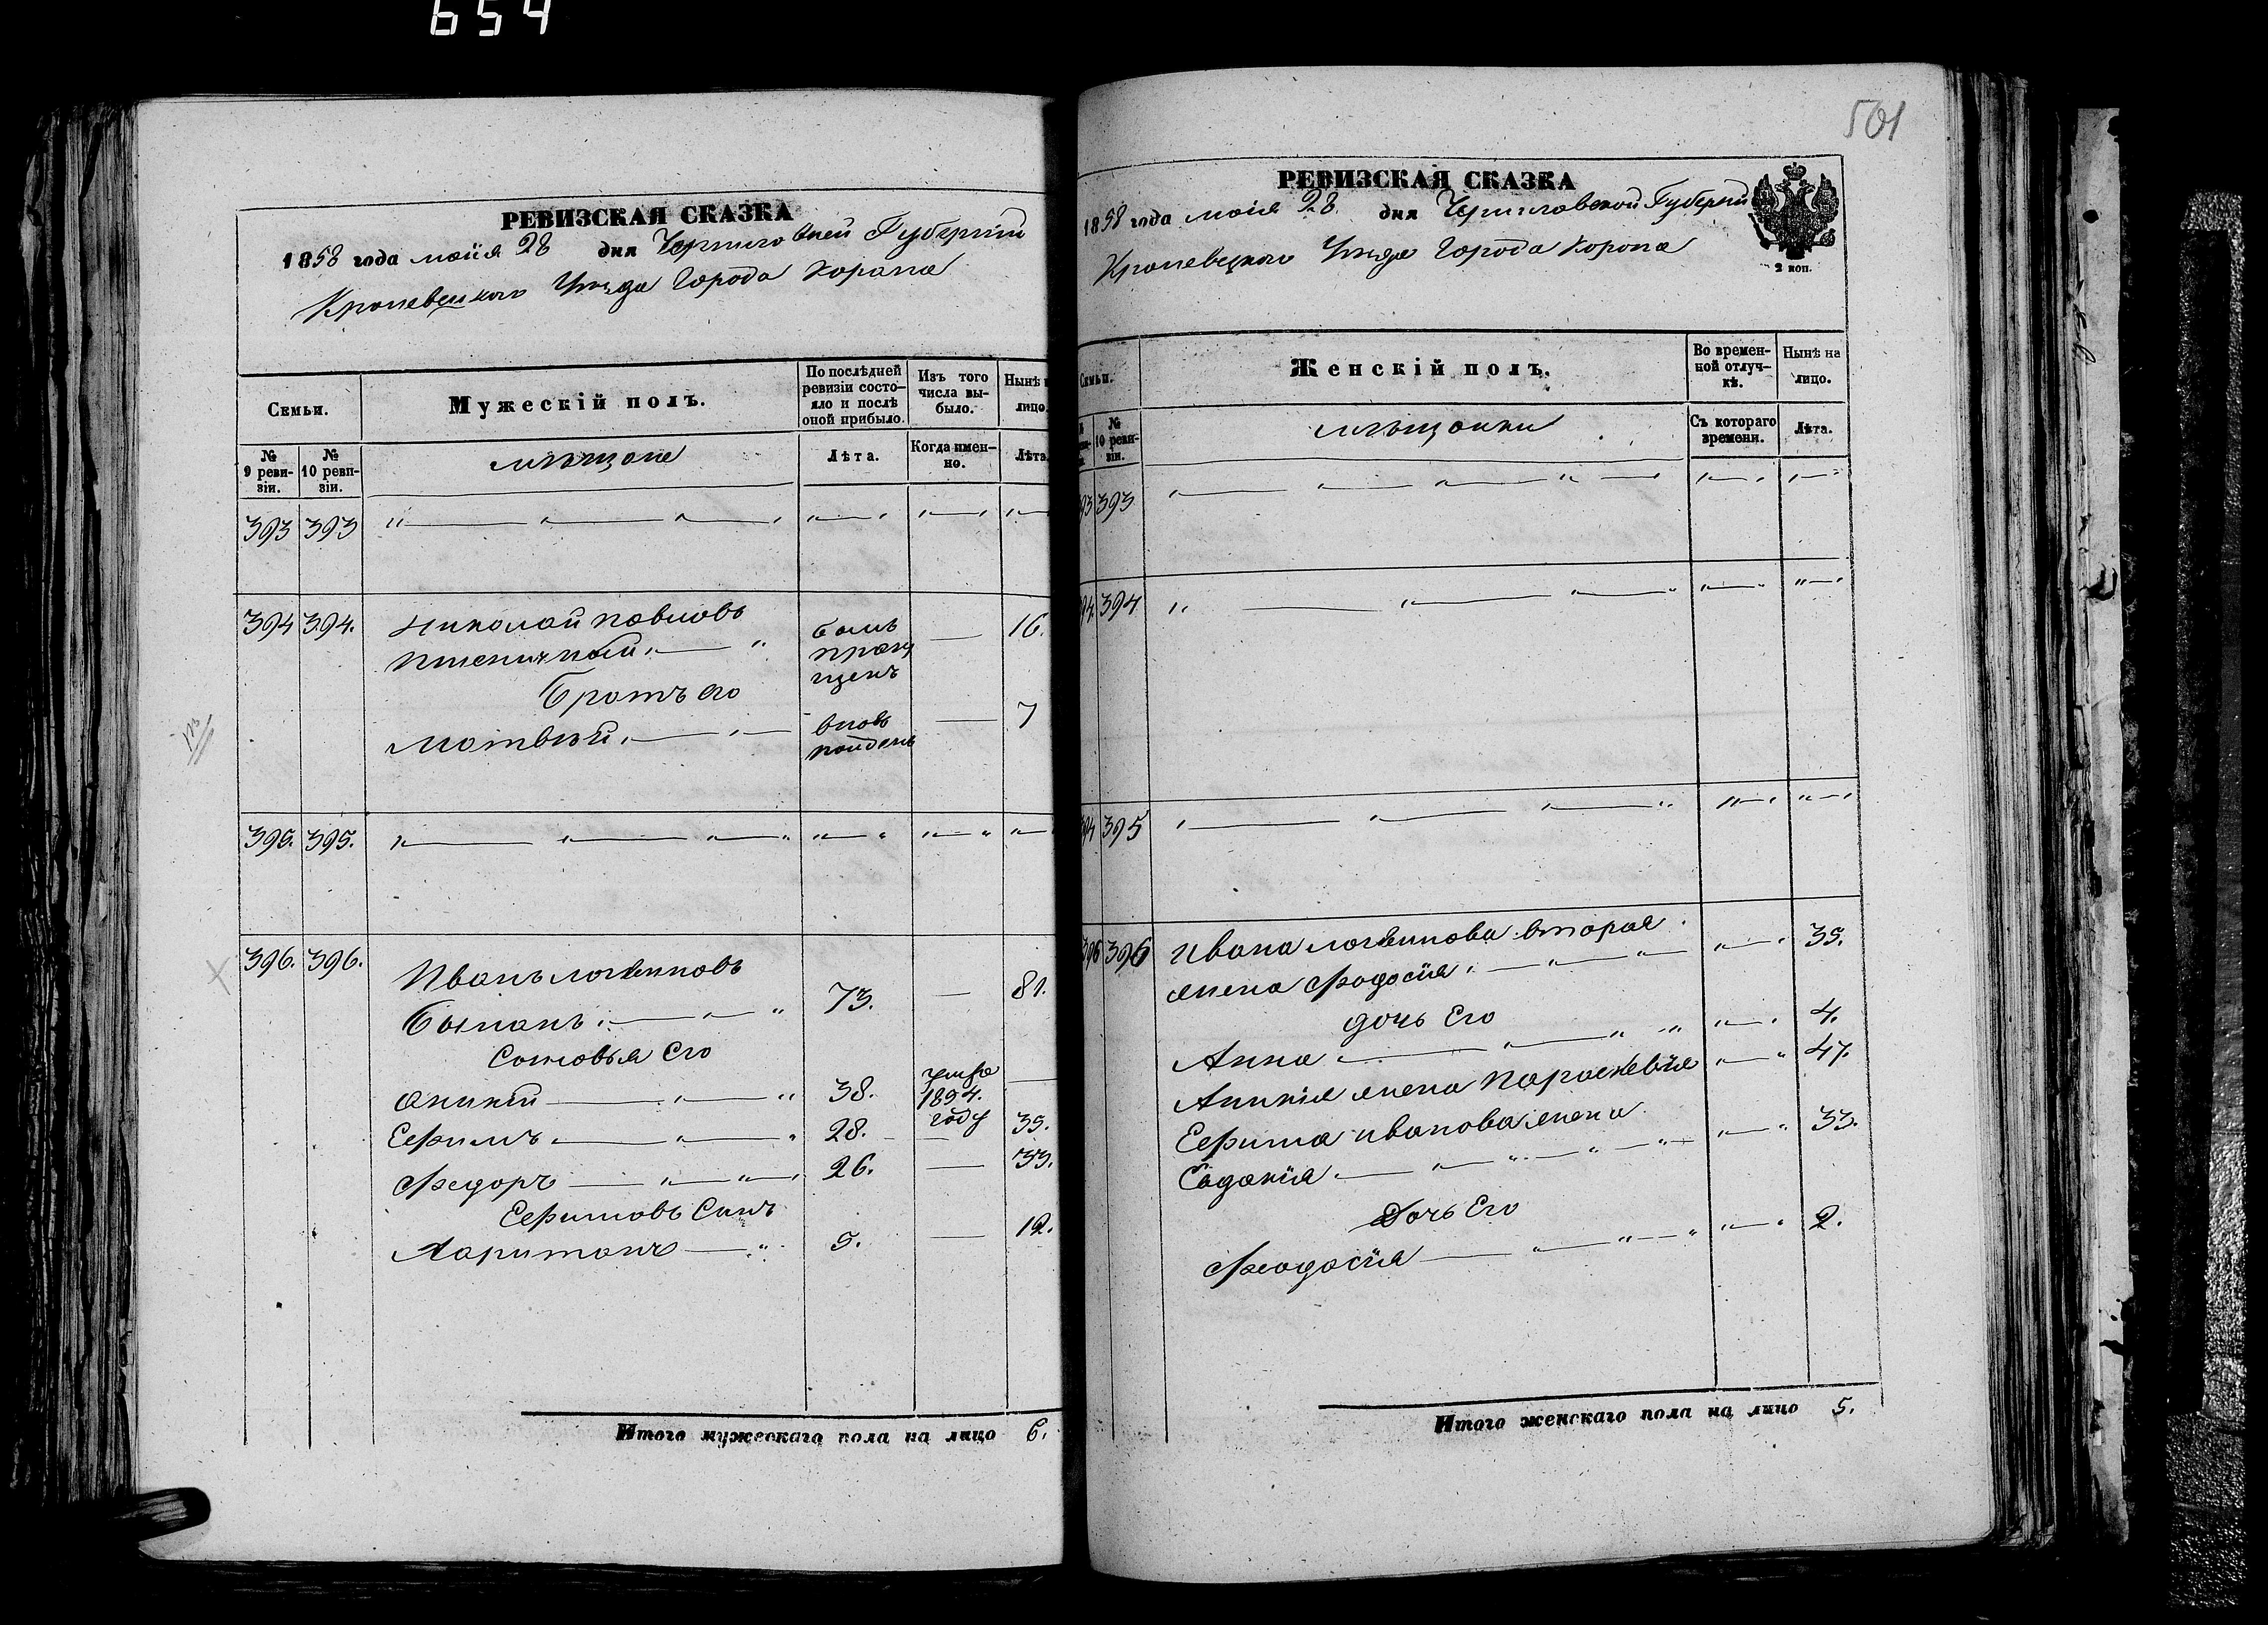 654
РЕВИЗСКАЯ СКАЗКА
1858 года маія 28 дня Черниговской Губерніи
Кролевецкаго Уѣзда Города Коропа
Семьи.
Мужескій полъ.
По послѣдней ревизіи состояло и послѣ оной прибыло.
Изъ того числа выбыло.
Нынѣ на лицо.
№ 9 ревизіи.
№ 10 ревизіи.
мѣщане
Лѣта.
Когда именно.
Лѣта.
393 393
394 394. Николай Павловъ
Пшеничный былъ пропущенъ — 16.
Братъ его
Матвѣй вновь найденъ — 7
395. 395.
396. 396. Иванъ Логвиновъ
73. — 81.
Сыновья Его
Аникій 38. умре 1854. году —
Ефимъ 28. — 35.
Федоръ 26. — 33.
Ефимовъ Сынъ
Харитонъ 5. — 12.
Итого мужескаго пола на лицо 6.
501
РЕВИЗСКАЯ СКАЗКА
1858 года маія 28. дня Черниговской Губерніи
Кролевецкаго Уѣзда Города Коропа
2 коп.
Семьи.
Женскій полъ.
Во временной отлучкѣ.
Нынѣ на лицо.
№ 10 ревизіи.
мѣщанки
Съ котораго времени.
Лѣта.
393
394
395
396 396 Ивана Логвинова вторая
жена Феодосія 35.
дочь Его
Анна 4.
Аникія жена Параскевія 47.
Ефима Иванова жена
Евдокія 33.
Дочь Его
Феодосія 2.
Итого женскаго пола на лицо 5.